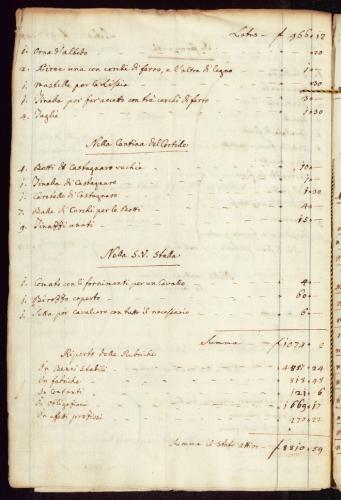 Latus - f 966.12
1. Orna d'albedo - - - - - .20
2. Pirie una con cerchi di ferro, e l'altra di legno - - 1. -
1. Mastella per la Lisia - - - 1. -
1. Tinella per far accetto con trè cerchi di ferro - 3. -
4. Taglie - - - - 1.30
Nella Cantina del Cortile
4. Botti di Castagnaro vechie - - - 10. -
1. Tinella di Castagnaro - - - 1. -
1. Caratello di Castagnaro - - - 1.30
7. Balle di Cerchi per le Botti - - - 4. -
9. Tinazzi usati - - - 15. -
Nella S.V. Stalla
1. Comato con li fornimenti per un Cavallo - - 4. -
1. Birozzo coperto - - - 60. -
1. Sella per cavalcare con tutto il necessario - - 6. -
Summa - f 1074. 2
Riporto delle Rubriche
In Benni Stabili - - - 4887.24
In fabriche - - - 818.48
In Contanti - - - 121.6
In Obligazioni - - - 1669.17
In afitti pretesi - - - 272.22
Summa il Stato attivo - f 8810.59